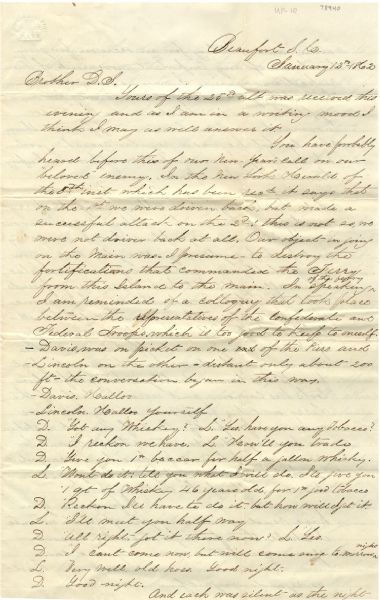 78940
Beaufort S. C.
January 13th 1862
Brother D. S.
Yours of the 25th ult was received this
evening and as I am in a writing mood I
think I may as well answer it
You have probably
heard before this of our New Year's call on our
"beloved" enemy. In the New York Herald of
the 8th inst which has been recd it says that
on the 1st we were driven back, but made a
successful attack on the 2d; this is not so, we
were not driven back at all. Our object in going
on the Main was I presume to destroy the
fortifications that commanded the Ferry
from this Island to the main. In speaking of the ferry
I am reminded of a colloquy that took place
between the representatives of the confederate and
Federal troops, which is too good to keep to oneself.
- Davis, was on picket on one end of the Pier and
- Lincoln on the other - distant only about 200
ft - the conversation began in this way.
- Davis. Halloo
- Lincoln Halloo Yourself
D. Got any Whiskey? L. Yes, have you any Tobacco?
D. I reckon we have. L. How'll you trade
D. Give you 1 lb baccar for half a gallon whiskey.
L. Wont do it. tell you what I will do. I'll give you
1 qt. of Whiskey 46 years old for 1 lb good tobacco
D. Reckon I'll have to do it. but how will I get it.
L. I'll meet you half way
D. All right - got it there now? L. Yes
D. I can't come now, but will come away tomorrow night
L. Very well old hoss. Good night.
D. Good night.
And each was silent as the night